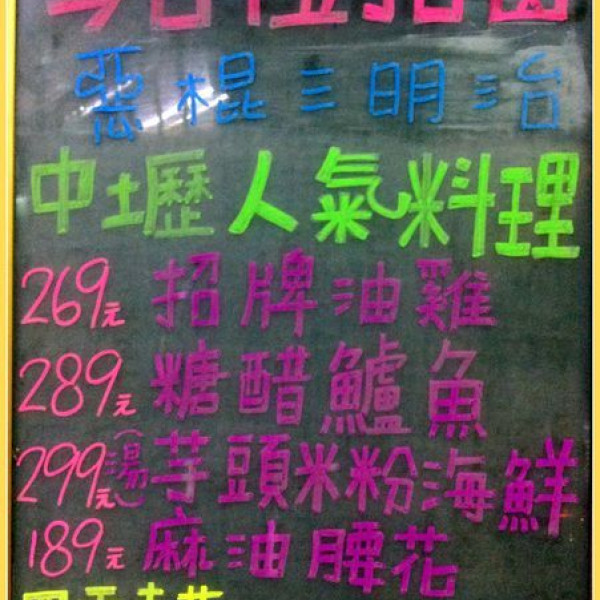 惡棍三明治
中壢人氣料理
269元 招牌油雞
289元 糖醋鱸魚
299元(湯)芋頭米粉海鮮
189元 麻油腰花